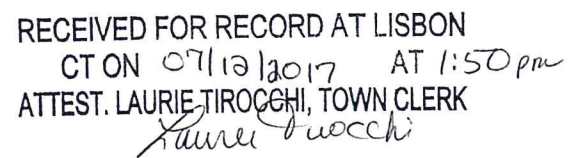 RECEIVED FOR RECORD AT LISBON
CT ON 07/12/2017 AT 1:50 pm
ATTEST. LAURIE TIROCCHI, TOWN CLERK
Laurie Tirocchi